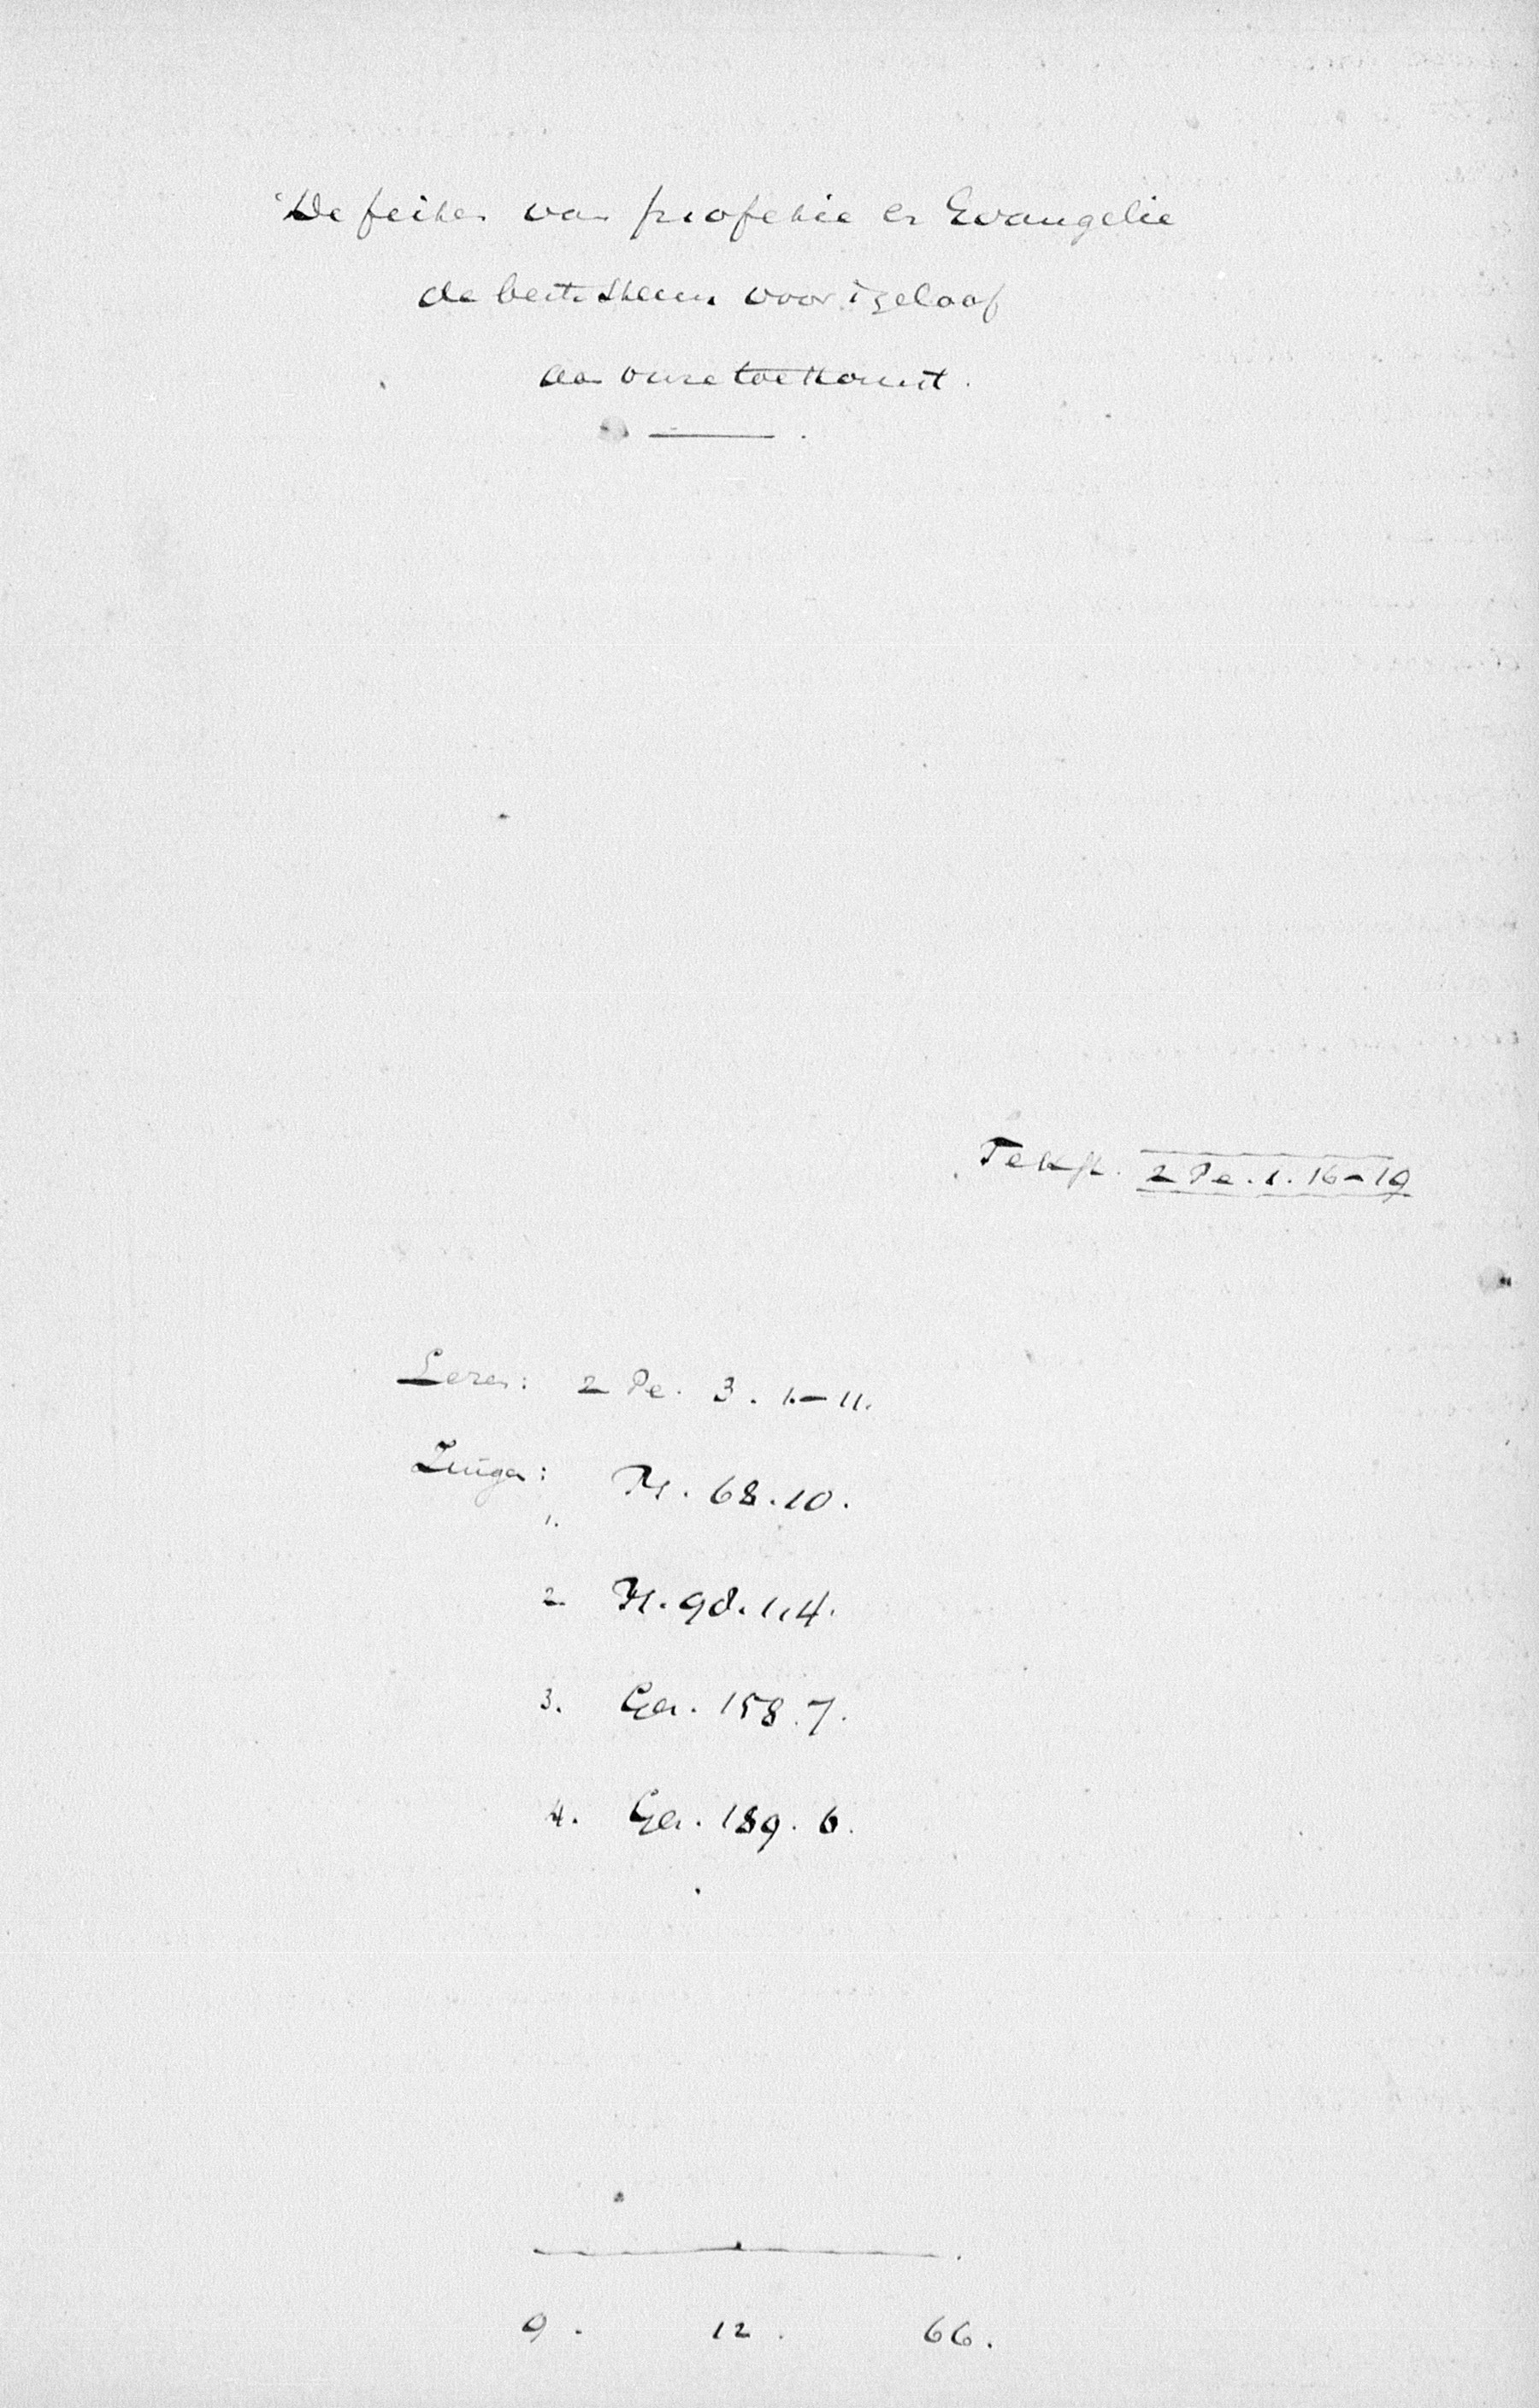 De feiten van profetie en Evangelie
de beste steun voor 't geloof
aan onze toekomst.
Tekst. 2 Pe. 1. 16-19
Lezen: 2 Pe. 3. 1.-11.
Zingen:
1. Ps. 68.10.
2. Ps. 98. 1,4.
3. Gez. 158.7.
4. Gez. 189. 6.
9. 12. 66.